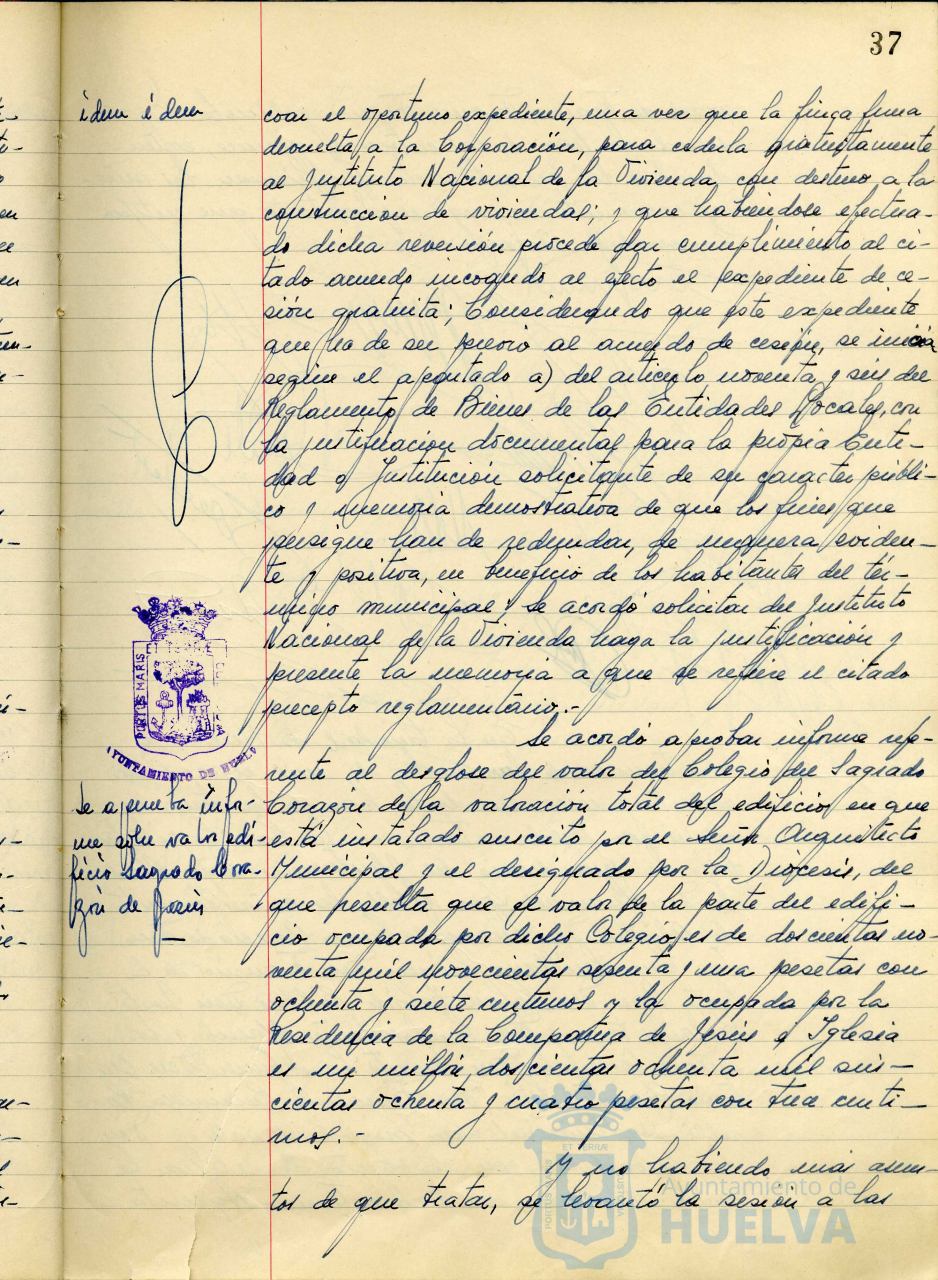 37
idem idem
coar el oportuno expediente, una vez que la finca fuera
devuelta a la Corporación, para cederla gratuitamente
al Instituto Nacional de la Vivienda con destino a la
construcción de viviendas; y que habiendose efectua-
do dicha reversión procede dar cumplimiento al ci-
tado acuerdo incoando al efecto el expediente de ce-
sión gratuita; Considerando que este expediente
que ha de ser previo al acuerdo de cesión, se inicia
según el apartado a) del artículo noventa y seis del
Reglamento de Bienes de las Entidades Locales, con
la justificación documental para la propia Enti-
dad o Institución solicitante de su caracter públi-
co y memoria demostrativa de que los fines que
persigue han de redundar, de manera eviden-
te y positiva, en beneficio de los habitantes del tér-
mino municipal; Se acordó solicitar del Instituto
Nacional de la Vivienda haga la justificación y
presente la memoria a que se refiere el citado
precepto reglamentario.-
PORTUS MARIS
ET TERRE
AYUNTAMIENTO DE HUELVA
Se aprueba infor-
me sobre valor edi-
ficio Sagrado Cora-
zón de Jesús
Se acordó aprobar informe refe-
rente al desglose del valor del Colegio del Sagrado
Corazón de la valoración total del edificio en que
está instalado suscrito por el Señor Arquitecto
Municipal y el designado por la Diocesis, del
que resulta que el valor de la parte del edifi-
cio ocupada por dicho Colegio, es de doscientas no-
venta mil novecientas sesenta y una pesetas con
ochenta y siete centimos y la ocupada por la
Residencia de la Compañia de Jesús e Iglesia
es un millón, doscientas ochenta mil seis-
cientas ochenta y cuatro pesetas con trece centi-
mos.-
Y no habiendo más asun-
tos de que tratar, se levantó la sesión a las
Ayuntamiento de
HUELVA